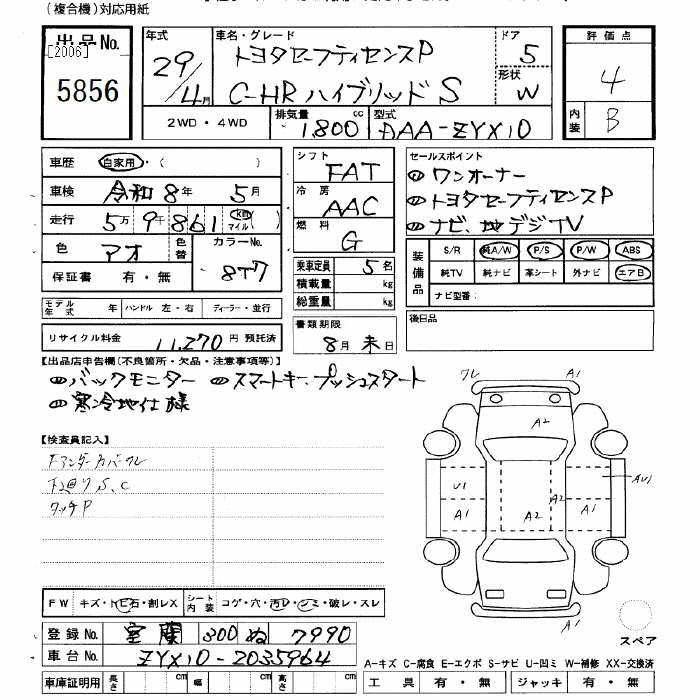 (複合機)対応用紙
出品No.
[2006]
5856
年式
29/4月
車名・グレード
トヨタセーフティセンスP
C-HR ハイブリッド S
ドア
5
形状
W
評価点
4
内装
B
2WD・4WD
排気量
1800cc
型式
DAA-ZYX10
車歴
自家用・( )
車検
令和8年 5月
走行
5万9千861
km
マイル
色
アオ
色替
カラーNo.
8T7
保証書 有・無
シフト
FAT
冷房
AAC
燃料
G
乗車定員 5名
積載量 kg
総重量 kg
セールスポイント
① ワンオーナー
② トヨタセーフティセンスP
③ ナビ、地デジTV
装備品
S/R 純A/W P/S P/W ABS
純TV 純ナビ 革シート 外ナビ エアB
ナビ型番:
モデル年式 年 ハンドル 左・右 ディーラー・並行
リサイクル料金 11,270 円 預託済
書類期限
8月 末日
後日品
【出品店申告欄(不良箇所・欠品・注意事項等)】
④ バックモニター ⑤ スマートキー、プッシュスタート
⑥ 寒冷地仕様
【検査員記入】
Fアンダーカバーワレ
下回りS、C
タッチP
ワレ
A1
A2
U1
A1
A2
A2
A1
AU1
A1
スペア
FW キズ・トビ石・割レX
シート内装
コゲ・穴・汚レ・シミ・破レ・スレ
登録No. 室蘭 300 ぬ 7990
車台No. ZYX10-2035964
車庫証明用 長さ cm 幅 cm 高さ cm
A-キズ C-腐食 E-エクボ S-サビ U-凹ミ W-補修 XX-交換済
工具 有・無 ジャッキ 有・無